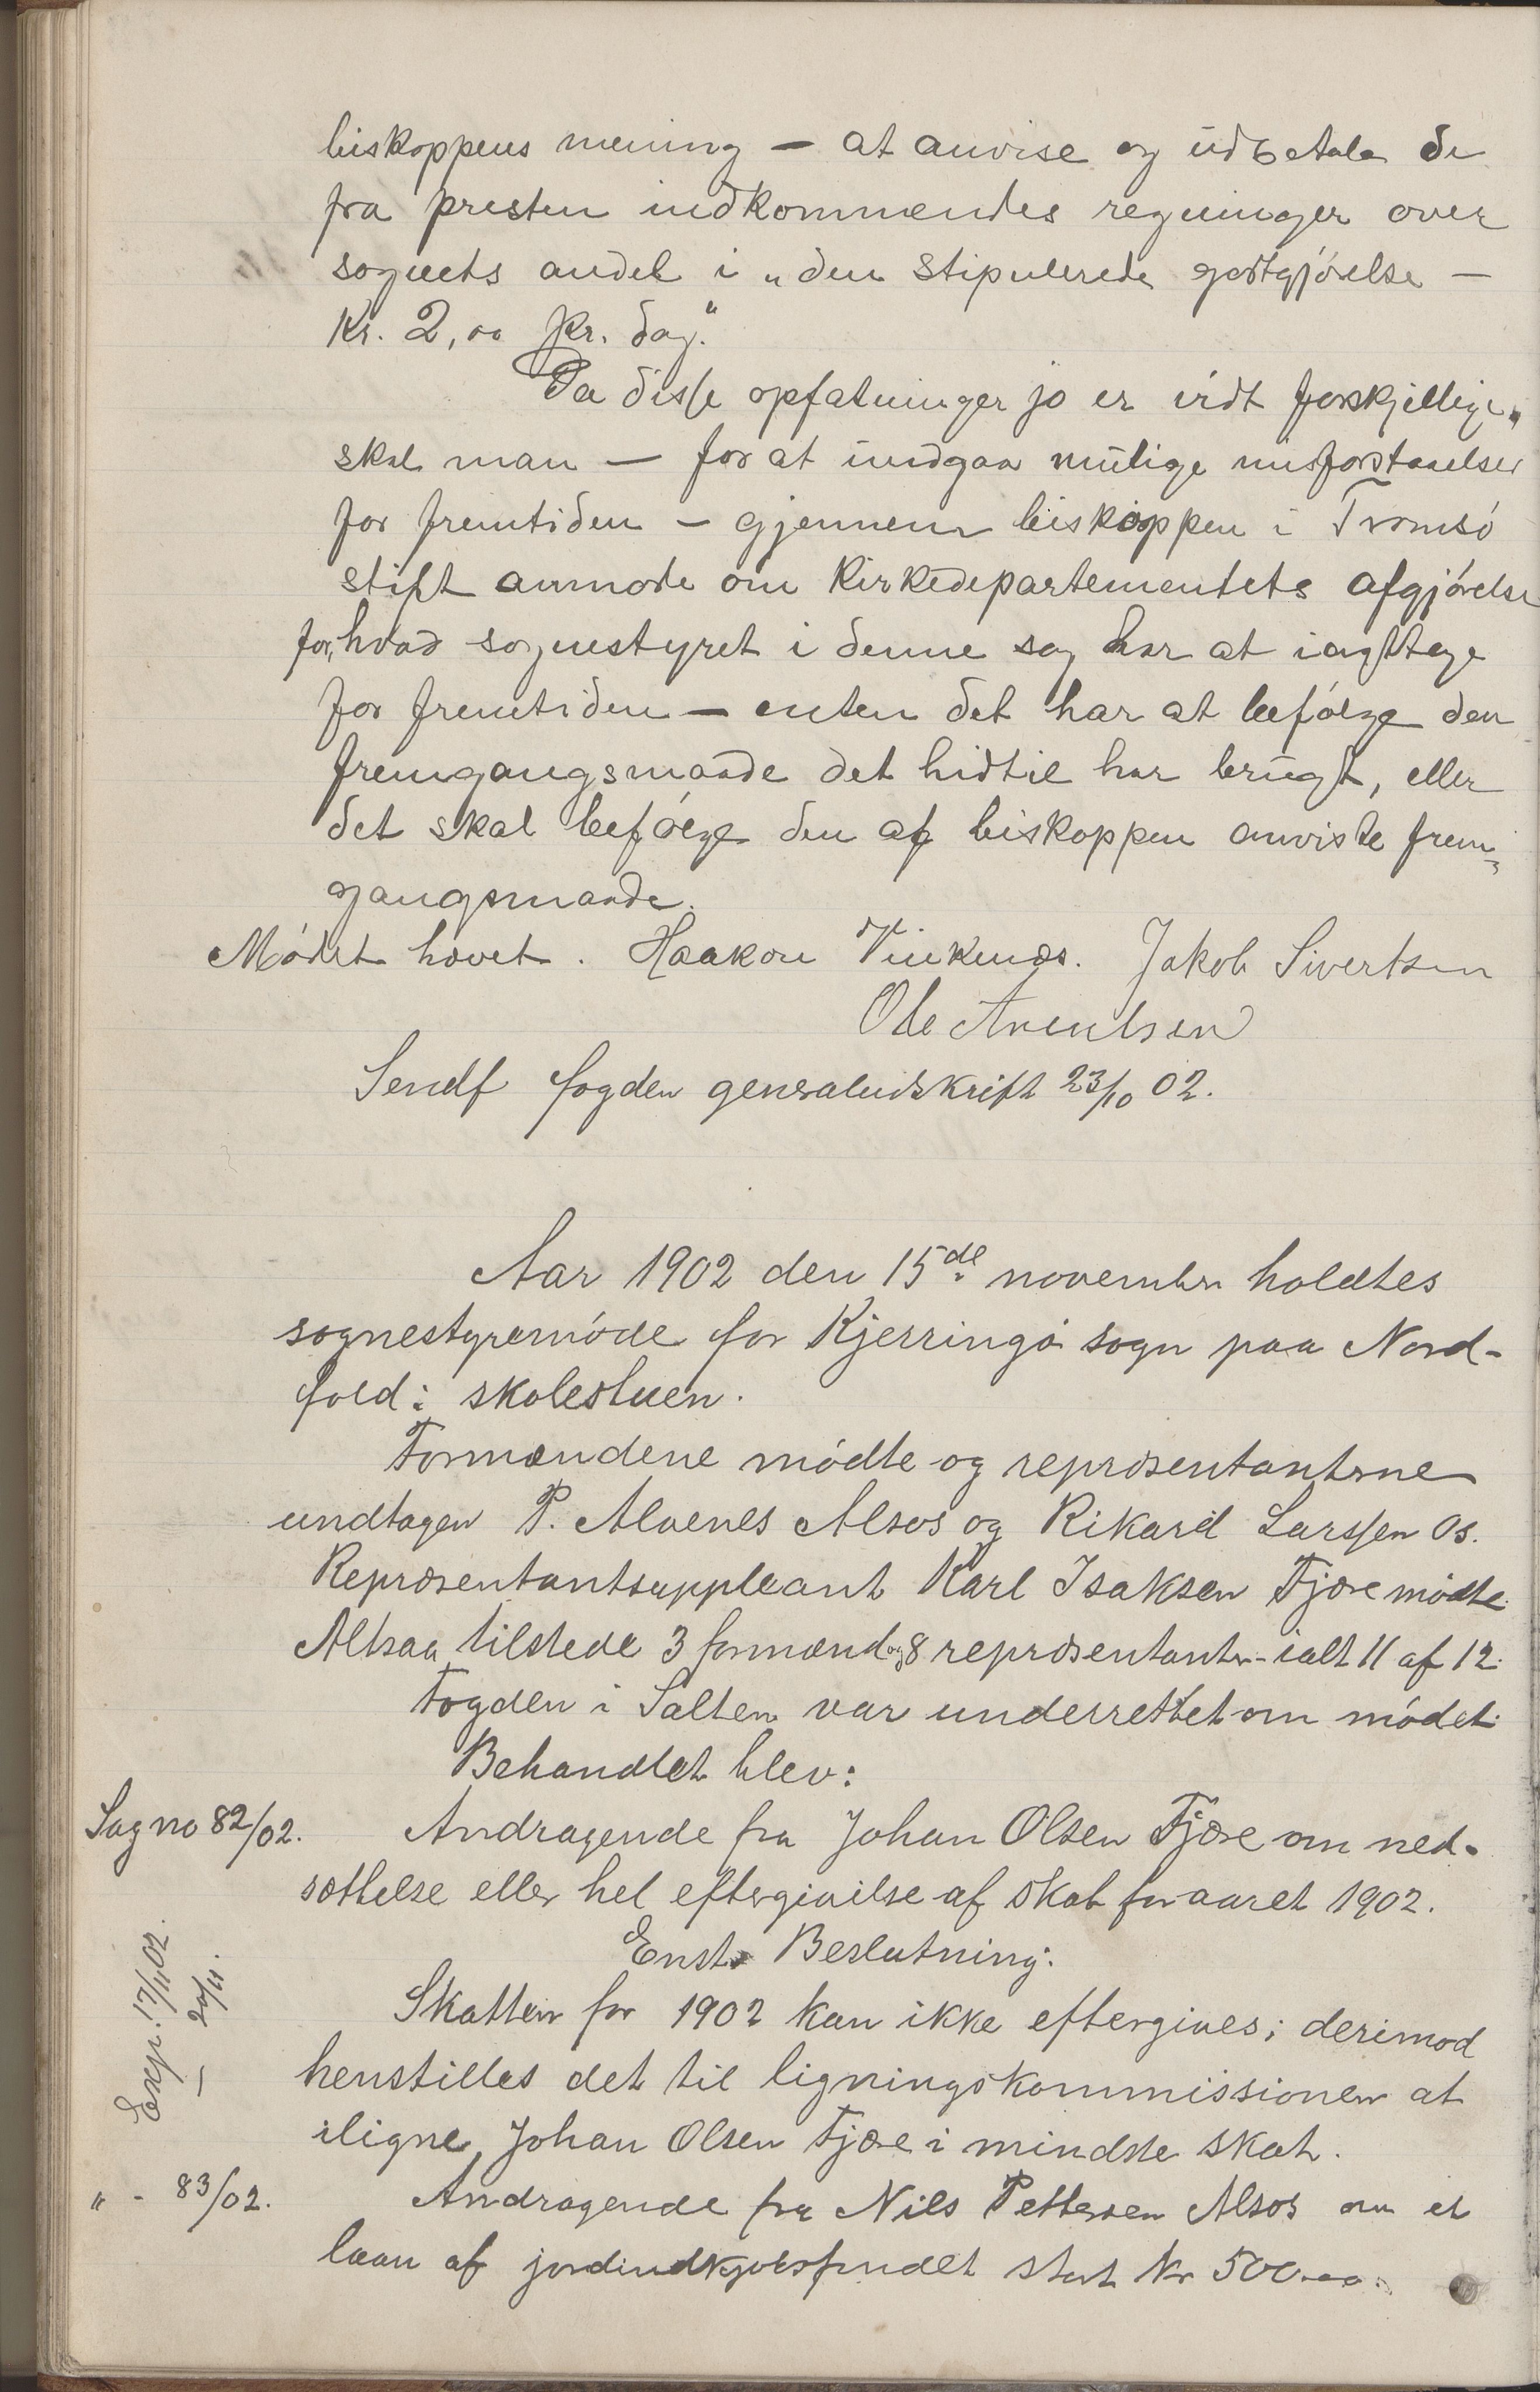 biskoppens mening — at anvise og udbetale de
fra presten indkommendes regninger over
sognets andel i „den stipulerede godtgjórelse —
Kr. 2,00 pr. dag."
Da disse opfatninger jo er vidt forskjellige,
skal man — for at undgaa mulige misforstaaelser
for fremtiden — gjennem biskoppen i Tromsó
stift anmode om Kirkedepartementets afgjórelse
for, hvad sognestyret i denne sag har at iagttage
for fremtiden — enten det har at befólge den
fremgangsmaade det hidtil har brugt, eller
det skal befólge den af biskoppen anviste frem-
gangsmaade.
Módet hævet. Haakon Vinkenæs. Jakob Sivertsen
Ole Arentsen
Sendt fogden genraludskrift 23/10 02.
Aar 1902 den 15de november holdtes
sognestyremóde for Kjerringó sogn paa Nord-
fold i skolestuen.
Formændene módte og repræsentanterne
undtagen P. Alvenes Alsos og Rikard Larssen Os.
Repræsentantsuppleant Karl Isaksen Fjære módte.
Altsaa tilstede 3 formænd og 8 repræsentanter - ialt 11 af 12.
Fogden i Salten var underrettet om módet.
Behandlet blev:
Sag no 82/02. Andragende fra Johan Olsen Fjære om ned-
sættelse eller hel eftergivilse af skat for aaret 1902.
Enst. Beslutning:
Exp. 17/11 02.
— 20/11.
Skatten for 1902 kan ikke eftergives; derimod
henstilles det til ligningskommissionen at
iligne Johan Olsen Fjære i mindste skat.
" - 83/02. Andragende fra Nils Pettersen Alsos om et
laan af jordindkjøbsfondet stort Kr 500.00.